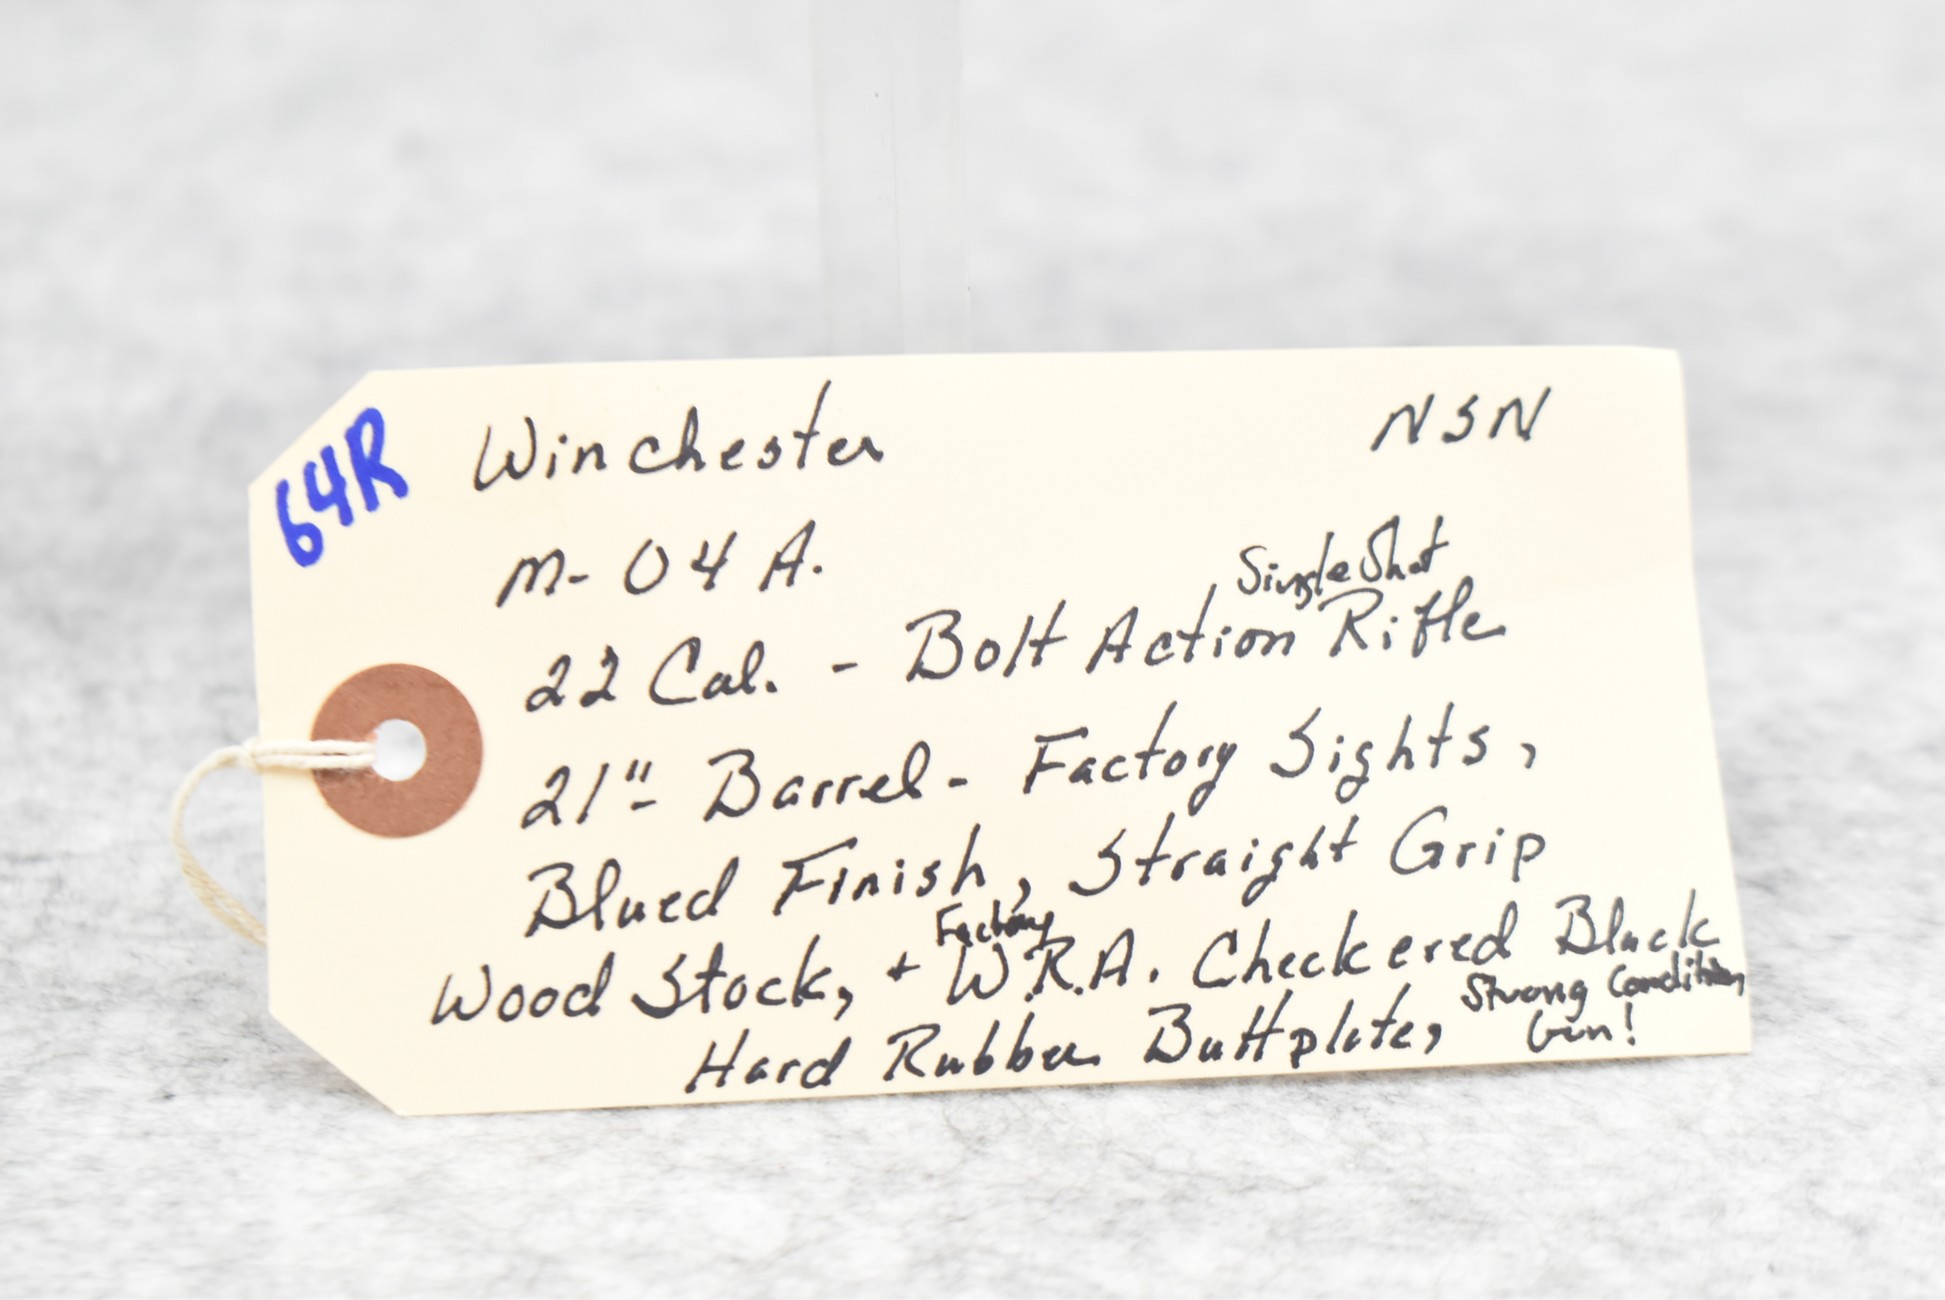 64R
Winchester NSN
M-04 A.
Single Shot
22 Cal. - Bolt Action Rifle
21"- Barrel - Factory Sights,
Blued Finish, Straight Grip
Factory
Wood Stock, + W.R.A. Checkered Black
Hard Rubber Buttplate, Strong Condition
Gun!